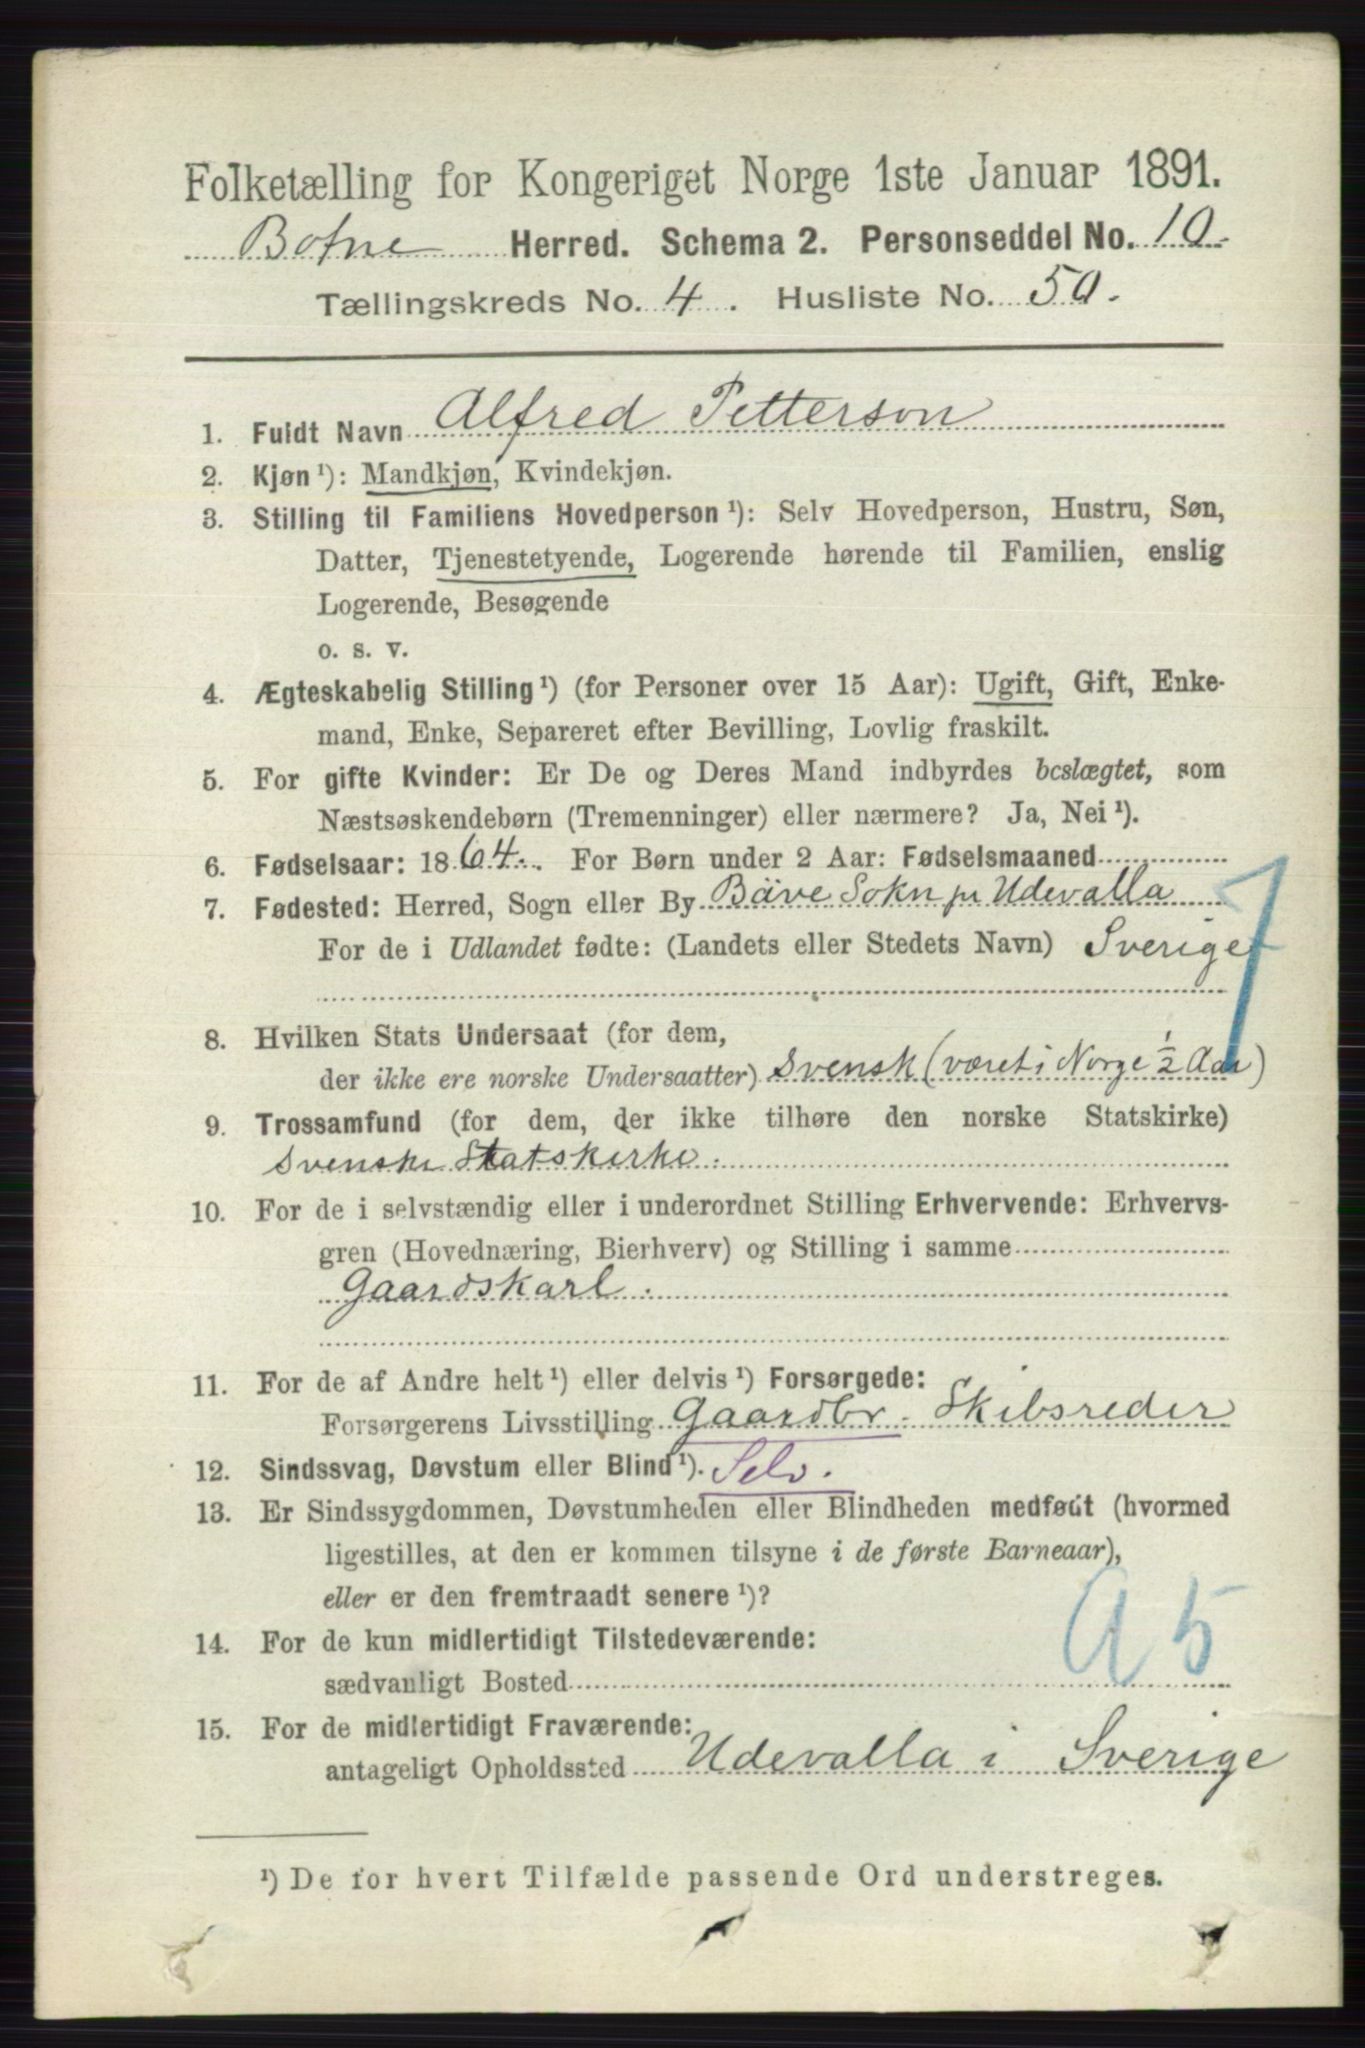 Folketælling for Kongeriget Norge 1ste Januar 1891.
Botne Herred. Schema 2. Personseddel No. 10.
Tællingskreds No. 4. Husliste No. 50.
1. Fuldt Navn Alfred Petterson
2. Kjøn ¹): Mandkjøn, Kvindekjøn.
3. Stilling til Familiens Hovedperson ¹): Selv Hovedperson, Hustru, Søn,
Datter, Tjenestetyende, Logerende hørende til Familien, enslig
Logerende, Besøgende
o. s. v.
4. Ægteskabelig Stilling ¹) (for Personer over 15 Aar): Ugift, Gift, Enke-
mand, Enke, Separeret efter Bevilling, Lovlig fraskilt.
5. For gifte Kvinder: Er De og Deres Mand indbyrdes beslægtet, som
Næstsøskendebørn (Tremenninger) eller nærmere? Ja, Nei ¹).
6. Fødselsaar: 1864. For Børn under 2 Aar: Fødselsmaaned
7. Fødested: Herred, Sogn eller By Bäve Sokn pr Udevalla
For de i Udlandet fødte: (Landets eller Stedets Navn) Sverige
7
8. Hvilken Stats Undersaat (for dem,
der ikke ere norske Undersaatter) Svensk (været i Norge ½ Aar)
9. Trossamfund (for dem, der ikke tilhøre den norske Statskirke)
Svenske Statskirke.
10. For de i selvstændig eller i underordnet Stilling Erhvervende: Erhvervs-
gren (Hovednæring, Bierhverv) og Stilling i samme
Gaardskarl.
11. For de af Andre helt ¹) eller delvis ¹) Forsørgede:
Forsørgerens Livsstilling Gaardbr. Skibsreder
12. Sindssvag, Døvstum eller Blind ¹). Selv.
13. Er Sindssygdommen, Døvstumheden eller Blindheden medfødt (hvormed
ligestilles, at den er kommen tilsyne i de første Barneaar),
eller er den fremtraadt senere ¹)?
A 5
14. For de kun midlertidigt Tilstedeværende:
sædvanligt Bosted
15. For de midlertidigt Fraværende:
antageligt Opholdssted Udevalla i Sverige
¹) De for hvert Tilfælde passende Ord understreges.